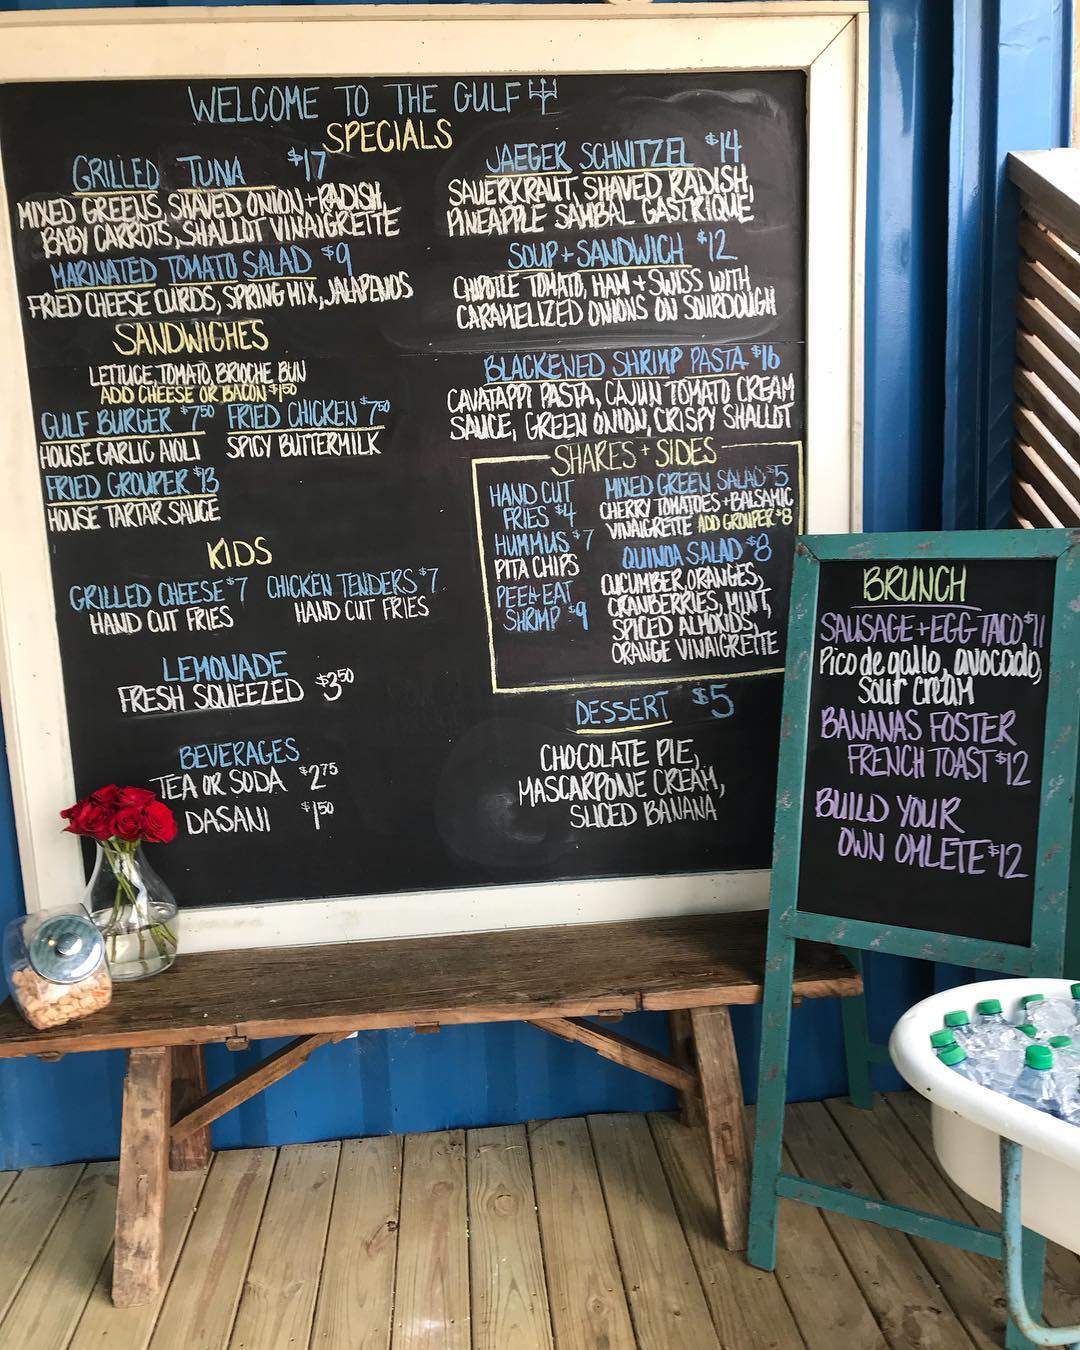 WELCOME TO THE GULF
SPECIALS
GRILLED TUNA $17
MIXED GREENS, SHAVED ONION + RADISH,
BABY CARROTS, SHALLOT VINAIGRETTE
MARINATED TOMATO SALAD $9
FRIED CHEESE CURDS, SPRING MIX, JALAPENOS
SANDWICHES
LETTUCE, TOMATO, BRIOCHE BUN
ADD CHEESE OR BACON $1.50
GULF BURGER $7.50
HOUSE GARLIC AIOLI
FRIED CHICKEN $7.50
SPICY BUTTERMILK
FRIED GROUPER $13
HOUSE TARTAR SAUCE
KIDS
GRILLED CHEESE $7
HAND CUT FRIES
CHICKEN TENDERS $7
HAND CUT FRIES
LEMONADE
FRESH SQUEEZED $3.50
BEVERAGES
TEA OR SODA $2.75
DASANI $1.50
JAEGER SCHNITZEL $14
SAUERKRAUT, SHAVED RADISH,
PINEAPPLE SAMBAL GASTRIQUE
SOUP + SANDWICH $12
CHIPOTLE TOMATO, HAM + SWISS WITH
CARAMELIZED ONIONS ON SOURDOUGH
BLACKENED SHRIMP PASTA $16
CAVATAPPI PASTA, CAJUN TOMATO CREAM
SAUCE, GREEN ONION, CRISPY SHALLOT
SHARES + SIDES
HAND CUT
FRIES $4
HUMMUS $7
PITA CHIPS
PEEL+EAT
SHRIMP $9
MIXED GREEN SALAD $5
CHERRY TOMATOES + BALSAMIC
VINAIGRETTE ADD GROUPER $8
QUINOA SALAD $8
CUCUMBER, ORANGES,
CRANBERRIES, MINT,
SPICED ALMONDS,
ORANGE VINAIGRETTE
DESSERT $5
CHOCOLATE PIE,
MASCARPONE CREAM,
SLICED BANANA
BRUNCH
SAUSAGE + EGG TACO $11
Pico de gallo, avocado,
sour cream
BANANAS FOSTER
FRENCH TOAST $12
BUILD YOUR
OWN OMLETE $12